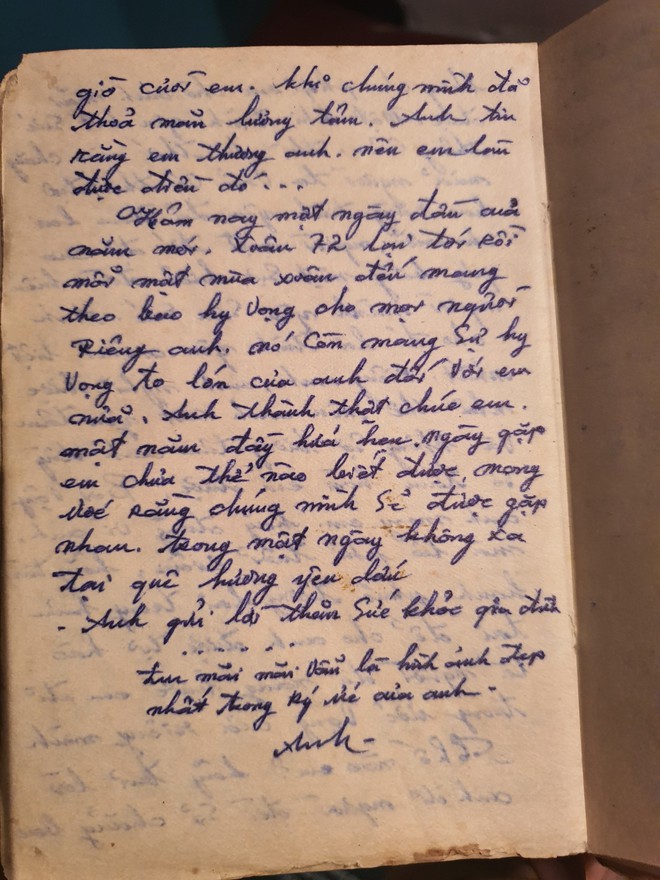 giờ cưới em. khi chúng mình đã
thoả mãn lương tâm. Anh tin
rằng em thương anh. nên em làm
được điều đó...
Hôm nay một ngày đầu của
năm mới. Xuân 72 lại tới rồi
mỗi một mùa xuân đến mang
theo bao hy vọng cho mọi người
Riêng anh. nó còn mang sự hy
vọng to lớn của anh đối với em
nữa. Anh thành thật chúc em.
một năm đầy hứa hẹn. ngày gặp
em chưa thể nào biết được, mong
ước rằng chúng mình sẽ được gặp
nhau. trong một ngày không xa
tại quê hương yêu dấu
- Anh gửi lời thăm sức khỏe gia đình
.......
mãi mãi vẫn là hình ảnh đẹp
nhất trong ký ức của anh -
Anh -